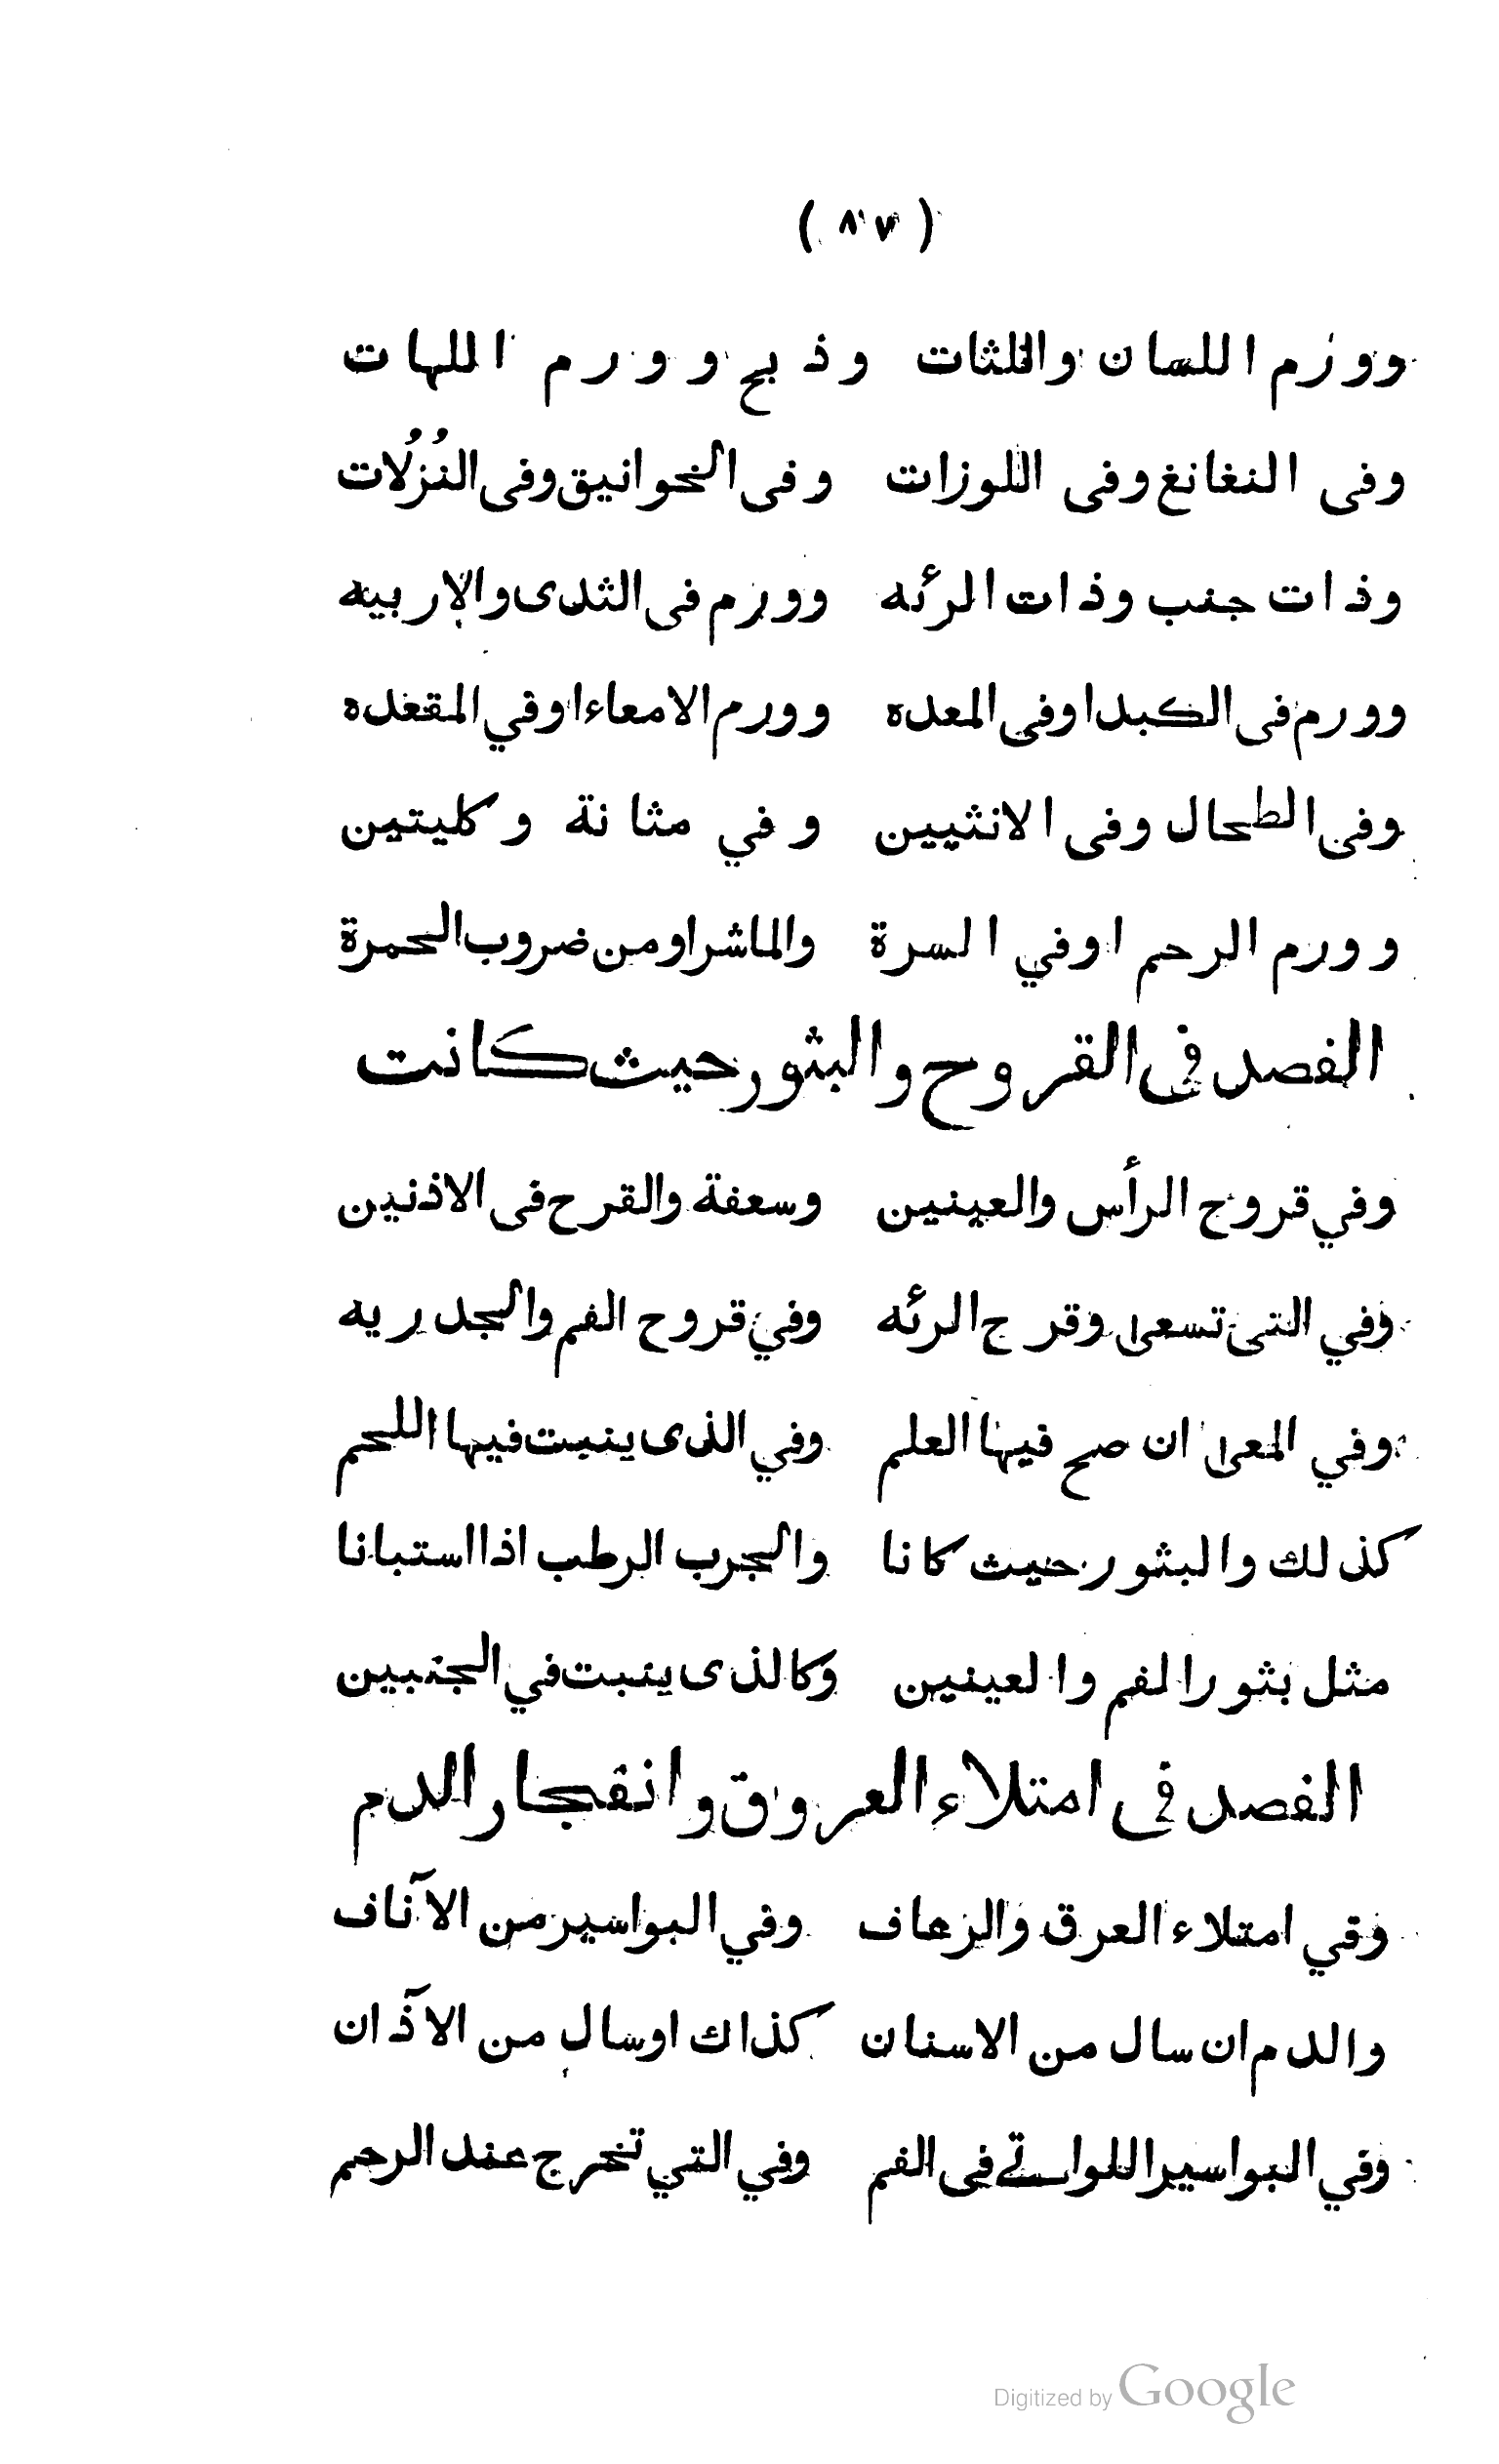 ( ٨٧ )
وورم اللسان واللثات وذبح وورم اللهات
وفى النغانغ وفى اللوزات وفى الخوانيق وفى النُزُلات
وذات جنب وذات الرئه وورم فى الثدى والاربيه
وورم فى الكبد اوفى المعده وورم الامعاء اوفي المقعده
وفى الطحال وفى الانثيين وفي مثانة وكليتين
وورم الرحم اوفي السرة والماشرا ومن ضروب الحمرة
الفصد فى القروح والبثور حيث كانت
وفي قروح الرأس والعينين وسعفة والقرح فى الاذنين
وفي التى تسعى وقرح الرئه وفي قروح الفم والجدريه
وفي المعى ان صح فيها العلم وفي الذى ينبت فيها اللحم
كذلك والبثور حيث كانا والجرب الرطب اذا استبانا
مثل بثور الفم والعينين وكالذى ينبت في الجنبين
الفصد فى امتلاء العروق وانفجار الدم
وفي امتلاء العرق والرعاف وفي البواسير من الآناف
والدم ان سال من الاسنان كذاك اوسال من الآذان
وفي البواسير اللواتے فى الفم وفي التي تخرج عند الرحم
Digitized by Google